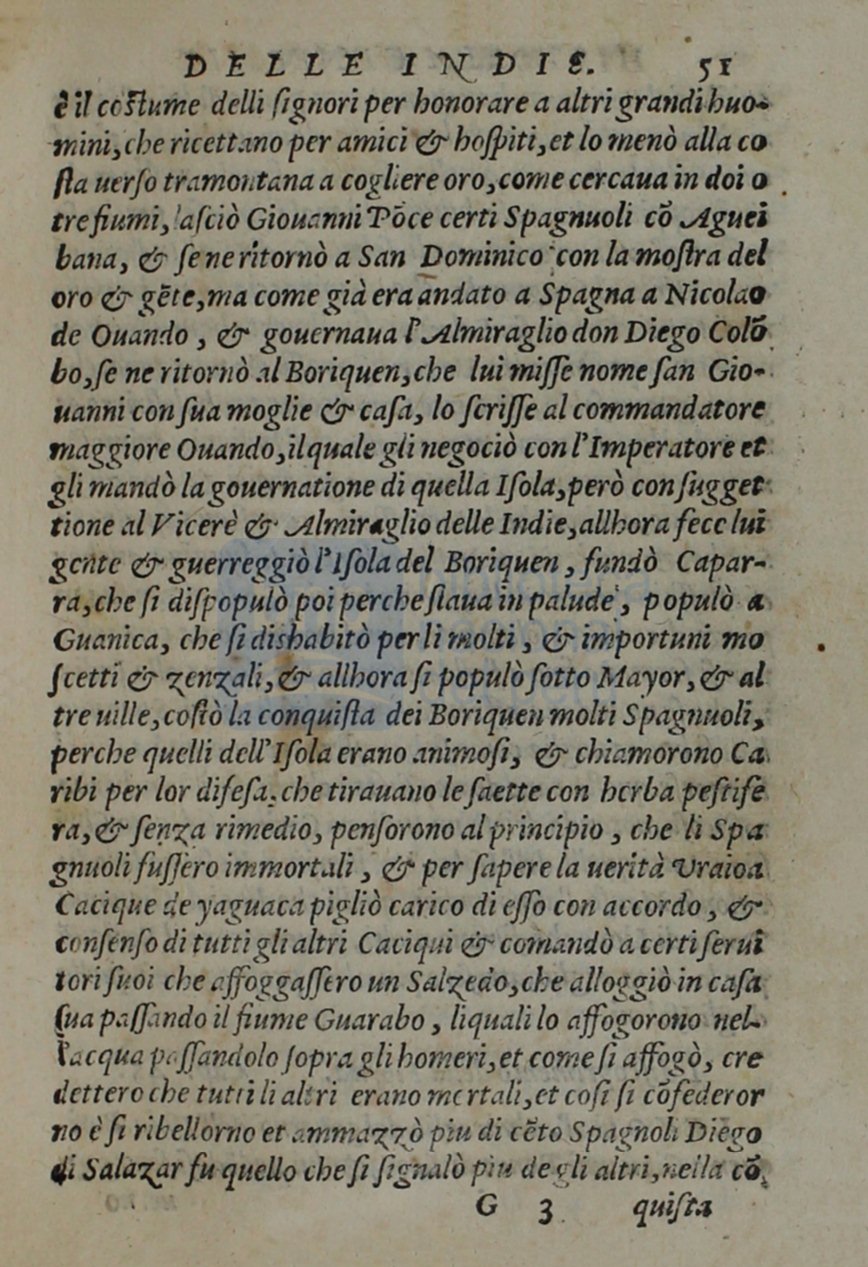 DELLE INDIE. 51
è il costume delli ſignori per honorare a altri grandi huo-
mini, che ricettano per amici & hoſpiti, et lo menò alla co
ſta uerſo tramontana a cogliere oro, come cercaua in doi o
tre fiumi, laſciò Giouanni Põce certi Spagnuoli cõ Aguei
bana, & ſe ne ritornò a San Dominico con la moſtra del
oro & gẽte, ma come già era andato a Spagna a Nicolao
de Ouando, & gouernaua l'Almiraglio don Diego Colõ
bo, ſe ne ritornò al Boriquen, che lui miſſe nome ſan Gio-
uanni con ſua moglie & caſa, lo ſcriſſe al commandatore
maggiore Ouando, ilquale gli negociò con l'Imperatore et
gli mandò la gouernatione di quella Iſola, però con ſugget
tione al Vicerè & Almiraglio delle Indie, allhora fece lui
gente & guerreggiò l'Iſola del Boriquen, fundò Capar-
ra, che ſi diſpopulò poi perche ſtaua in palude, populò a
Guanica, che ſi dishabitò per li molti, & importuni mo
ſcetti & zenzali, & allhora ſi populò ſotto Mayor, & al
tre uille, coſtò la conquiſta dei Boriquen molti Spagnuoli,
perche quelli dell'Iſola erano animoſi, & chiamorono Ca
ribi per lor difeſa, che tirauano le ſaette con herba peſtife
ra, & ſenza rimedio, penſorono al principio, che li Spa
gnuoli fuſſero immortali, & per ſapere la uerità Vraioa
Cacique de yaguaca pigliò carico di eſſo con accordo, &
conſenſo di tutti gli altri Caciqui & comandò a certi ſerui
tori ſuoi che affoggaſſero un Salzedo, che alloggiò in caſa
ſua paſſando il fiume Guarabo, liquali lo affogorono nel-
l'acqua paſſandolo ſopra gli homeri, et come ſi affogò, cre
dettero che tutti li altri erano mortali, et coſi ſi cõfederor
no è ſi ribellorno et ammazzò piu di cẽto Spagnoli Diego
di Salazar fu quello che ſi ſignalò piu de gli altri, nella cõ
G 3 quiſta